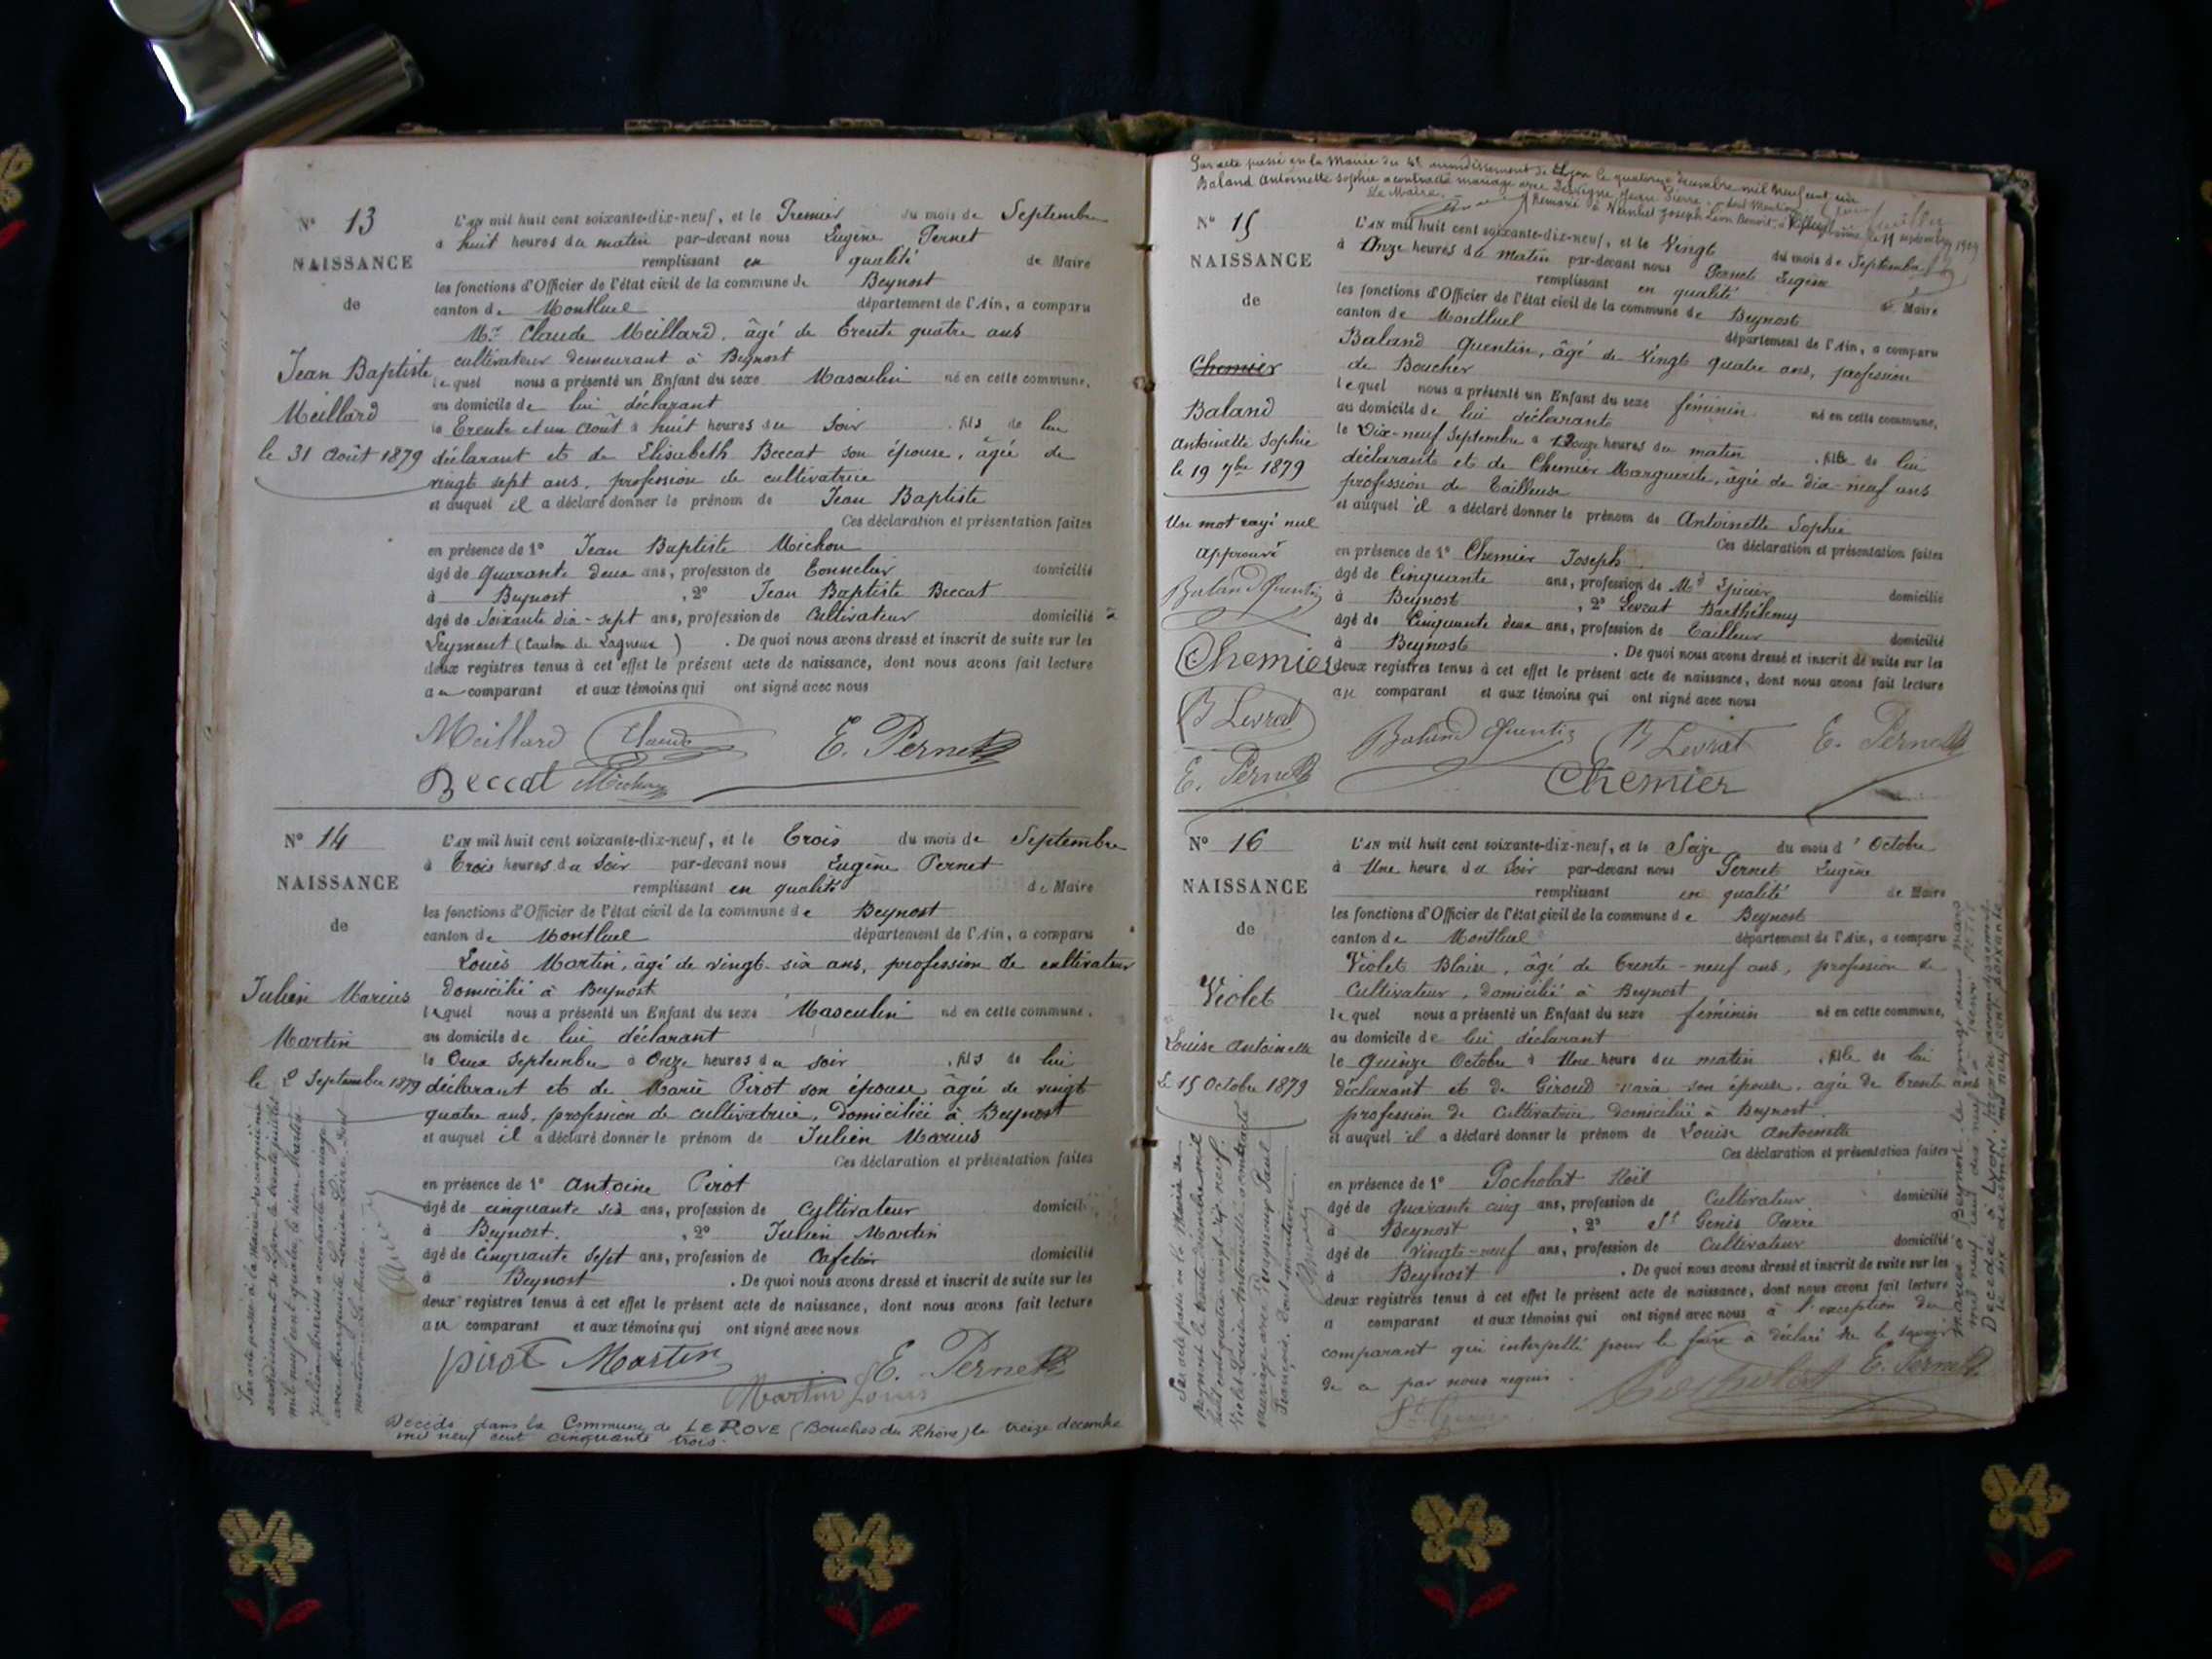 N° 13
NAISSANCE
de
Jean Baptiste
Meillard
le 31 Août 1879
L'AN mil huit cent soixante-dix-neuf, et le Premier du mois de Septembre
à huit heures du matin par-devant nous Eugène Pernet
remplissant en qualité de Maire
les fonctions d'Officier de l'état civil de la commune de Beynost
canton de Montluel département de l'Ain, a comparu
Mr Claude Meillard, âgé de trente quatre ans
cultivateur demeurant à Beynost
lequel nous a présenté un Enfant du sexe Masculin né en cette commune,
au domicile de lui déclarant
le trente et un Août à huit heures du soir, fils de lui
déclarant et de Elisabeth Beccat son épouse, âgée de
vingt sept ans, profession de cultivatrice
et auquel il a déclaré donner le prénom de Jean Baptiste
Ces déclaration et présentation faites
en présence de 1° Jean Baptiste Michon
âgé de quarante deux ans, profession de tonnelier domicilié
à Beynost, 2° Jean Baptiste Beccat
âgé de soixante dix-sept ans, profession de cultivateur domicilié à
Leyment (Canton de Lagnieu). De quoi nous avons dressé et inscrit de suite sur les
deux registres tenus à cet effet le présent acte de naissance, dont nous avons fait lecture
au comparant et aux témoins qui ont signé avec nous
Meillard Claude E. Pernet
Beccat Michon
N° 14
NAISSANCE
de
Julien Marius
Martin
le 2 Septembre 1879
L'AN mil huit cent soixante-dix-neuf, et le trois du mois de Septembre
à trois heures du soir par-devant nous Eugène Pernet
remplissant en qualité de Maire
les fonctions d'Officier de l'état civil de la commune de Beynost
canton de Montluel département de l'Ain, a comparu
Louis Martin, âgé de vingt-six ans, profession de cultivateur
domicilié à Beynost
lequel nous a présenté un Enfant du sexe Masculin né en cette commune,
au domicile de lui déclarant
le deux septembre à onze heures du soir, fils de lui
déclarant et de Marie Pirot son épouse âgée de vingt
quatre ans, profession de cultivatrice, domiciliée à Beynost
et auquel il a déclaré donner le prénom de Julien Marius
Ces déclaration et présentation faites
en présence de 1° Antoine Pirot
âgé de cinquante six ans, profession de cultivateur domicilié
à Beynost, 2° Julien Martin
âgé de cinquante sept ans, profession de cafetier domicilié
à Beynost. De quoi nous avons dressé et inscrit de suite sur les
deux registres tenus à cet effet le présent acte de naissance, dont nous avons fait lecture
au comparant et aux témoins qui ont signé avec nous
pirot Martin E. Pernet
Martin Louis
Décédé dans la Commune de LE ROVE (Bouches du Rhône) le treize décembre
mil neuf cent cinquante trois.
Par acte passé à la Mairie du cinquième
arrondissement de Lyon le trente juillet
mil neuf cent quatre, le sieur Martin
Julien Marius a contracté mariage
avec Marguerite Louise Loire. Dont
mention. Le Maire.
Par acte passé en la Mairie du 4e arrondissement de Lyon le quatorze décembre mil neuf cent un
Baland Antoinette Sophie a contracté mariage avec Pierre. dont Mention
Le Maire. Remarié à Joseph Léon Benoit à le 11 septembre 1929
N° 15
NAISSANCE
de
Chemier
Baland
Antoinette Sophie
le 19 7bre 1879
Un mot rayé nul
approuvé
Baland Quentin
Chemier
B Levrat
E. Pernet
L'AN mil huit cent soixante-dix-neuf, et le Vingt du mois de Septembre
à Onze heures du matin par-devant nous Pernet Eugène
remplissant en qualité de Maire
les fonctions d'Officier de l'état civil de la commune de Beynost
canton de Montluel département de l'Ain, a comparu
Baland Quentin, âgé de vingt quatre ans, profession
de Boucher
lequel nous a présenté un Enfant du sexe féminin né en cette commune,
au domicile de lui déclarant
le Dix-neuf Septembre à heures du matin, fille de lui
déclarant et de Chemier Marguerite, âgée de dix-neuf ans
profession de Tailleuse
et auquel il a déclaré donner le prénom de Antoinette Sophie
Ces déclaration et présentation faites
en présence de 1° Chemier Joseph
âgé de Cinquante ans, profession de Md Épicier domicilié
à Beynost, 2° Levrat Barthélemy
âgé de Cinquante deux ans, profession de Tailleur domicilié
à Beynost. De quoi nous avons dressé et inscrit de suite sur les
deux registres tenus à cet effet le présent acte de naissance, dont nous avons fait lecture
au comparant et aux témoins qui ont signé avec nous
Baland Quentin B Levrat E. Pernet
Chemier
N° 16
NAISSANCE
de
Violet
Louise Antoinette
Le 15 Octobre 1879
L'AN mil huit cent soixante-dix-neuf, et le Seize du mois d'Octobre
à Une heure du Soir par-devant nous Pernet Eugène
remplissant en qualité de Maire
les fonctions d'Officier de l'état civil de la commune de Beynost
canton de Montluel département de l'Ain, a comparu
Violet Blaise, âgé de trente-neuf ans, profession de
Cultivateur, domicilié à Beynost
lequel nous a présenté un Enfant du sexe féminin né en cette commune,
au domicile de lui déclarant
le quinze Octobre à Une heure du matin, fille de lui
déclarant et de Giroud Maria son épouse, âgée de trente ans
profession de Cultivatrice, domiciliée à Beynost.
et auquel il a déclaré donner le prénom de Louise Antoinette
Ces déclaration et présentation faites
en présence de 1° Pocholat Noël
âgé de quarante cinq ans, profession de Cultivateur domicilié
à Beynost, 2° St Genis Pierre
âgé de vingt-neuf ans, profession de Cultivateur domicilié
à Beynost. De quoi nous avons dressé et inscrit de suite sur les
deux registres tenus à cet effet le présent acte de naissance, dont nous avons fait lecture
a comparant et aux témoins qui ont signé avec nous à l'exception du
comparant qui interpellé pour le faire a déclaré ne le savoir
de ce par nous requis.
Pocholat E. Pernet
St Genis
Par acte passé en la Mairie de
Beynost le trente décembre mil
huit cent quatre vingt dix neuf.
Violet Louise Antoinette a contracté
mariage avec Paul
François. Dont mention.
Mariée à Beynost le vingt deux mars
mil neuf cent dix neuf à PETIT
Décédée à Lyon arrondissement
le six décembre mil neuf cent soixante